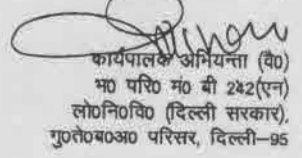 कार्यपालक अभियन्ता (वै०)
भ० परि० मं० बी 242(एन)
लो०नि०वि० (दिल्ली सरकार),
गु०ते०ब०अ० परिसर, दिल्ली–95